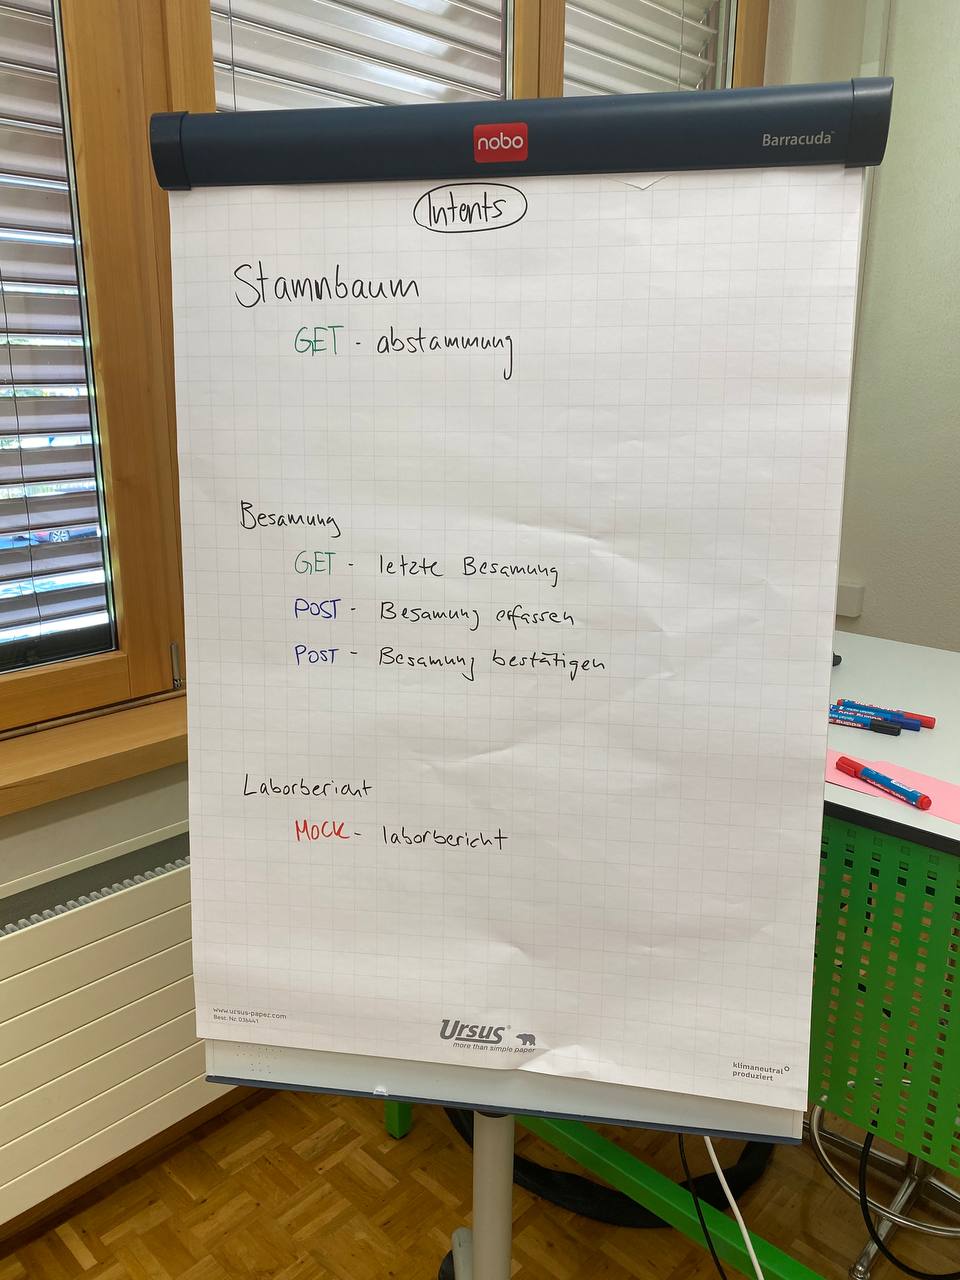 nobo
Barracuda
Intents
Stammbaum
GET - abstammung
Besamung
GET - letzte Besamung
POST - Besamung erfassen
POST - Besamung bestätigen
Laborbericht
MOCK - laborbericht
www.ursus-paper.com
Best. Nr. 036441
Ursus®
more than simple paper
klimaneutral
produziert